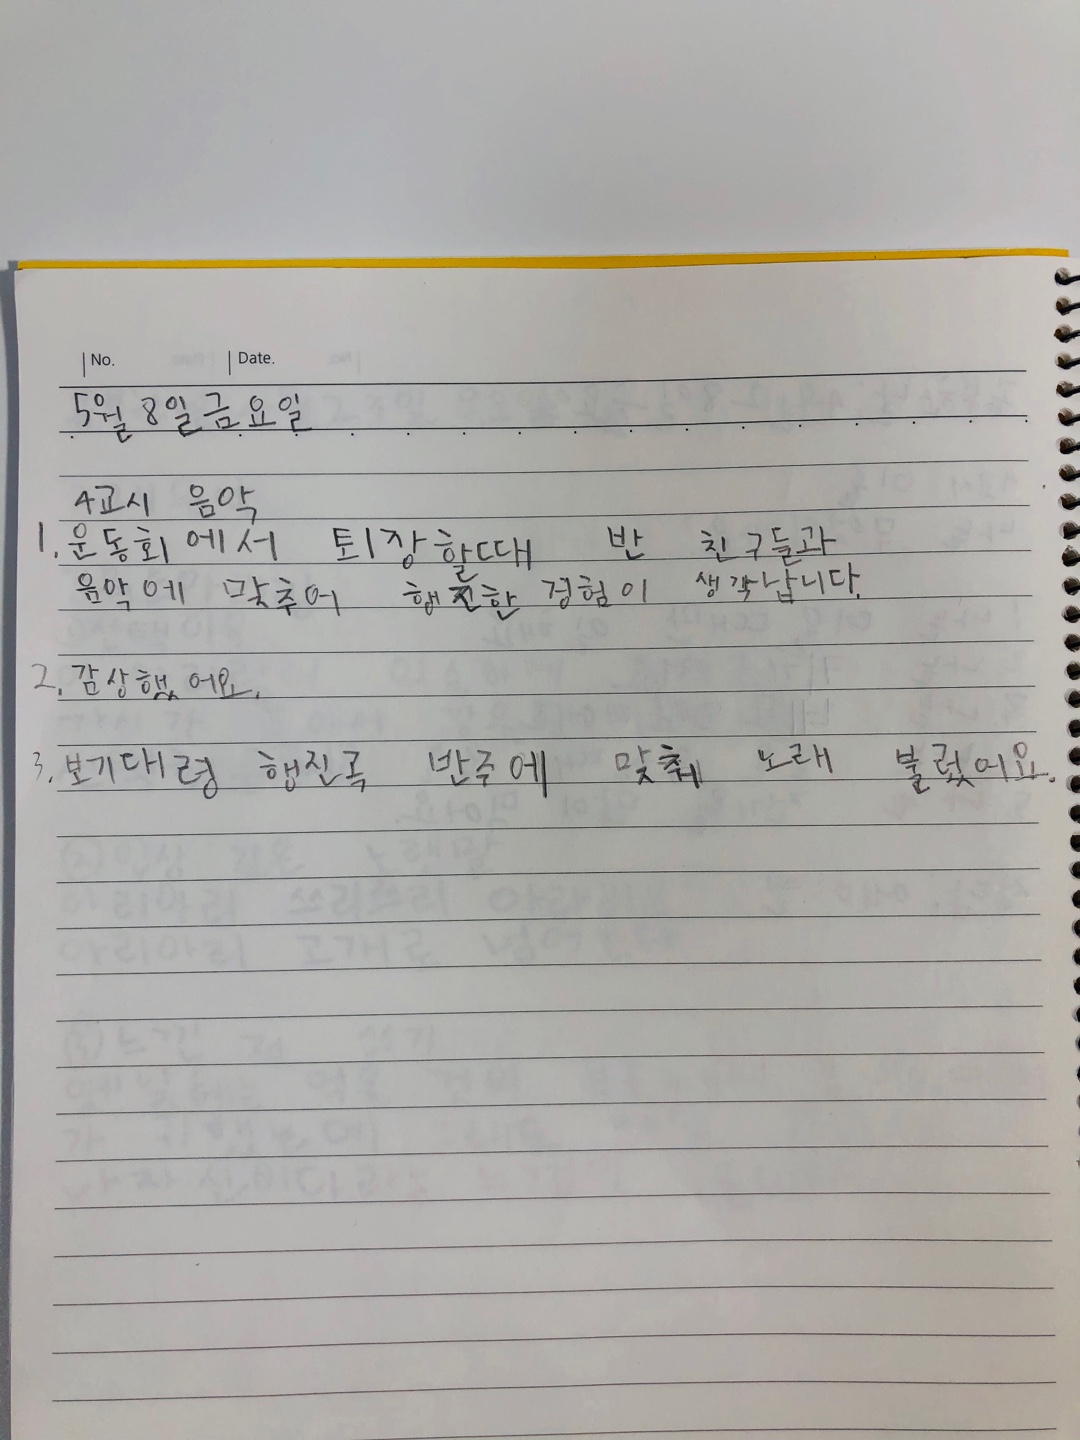 No. Date.
5월 8일 금요일
4교시 음악
1. 운동회에서 퇴장할때 반 친구들과
음악에 맞추어 행진한 경험이 생각납니다.
2. 감상했어요.
3. 보기대령 행진곡 반주에 맞춰 노래 불렀어요.